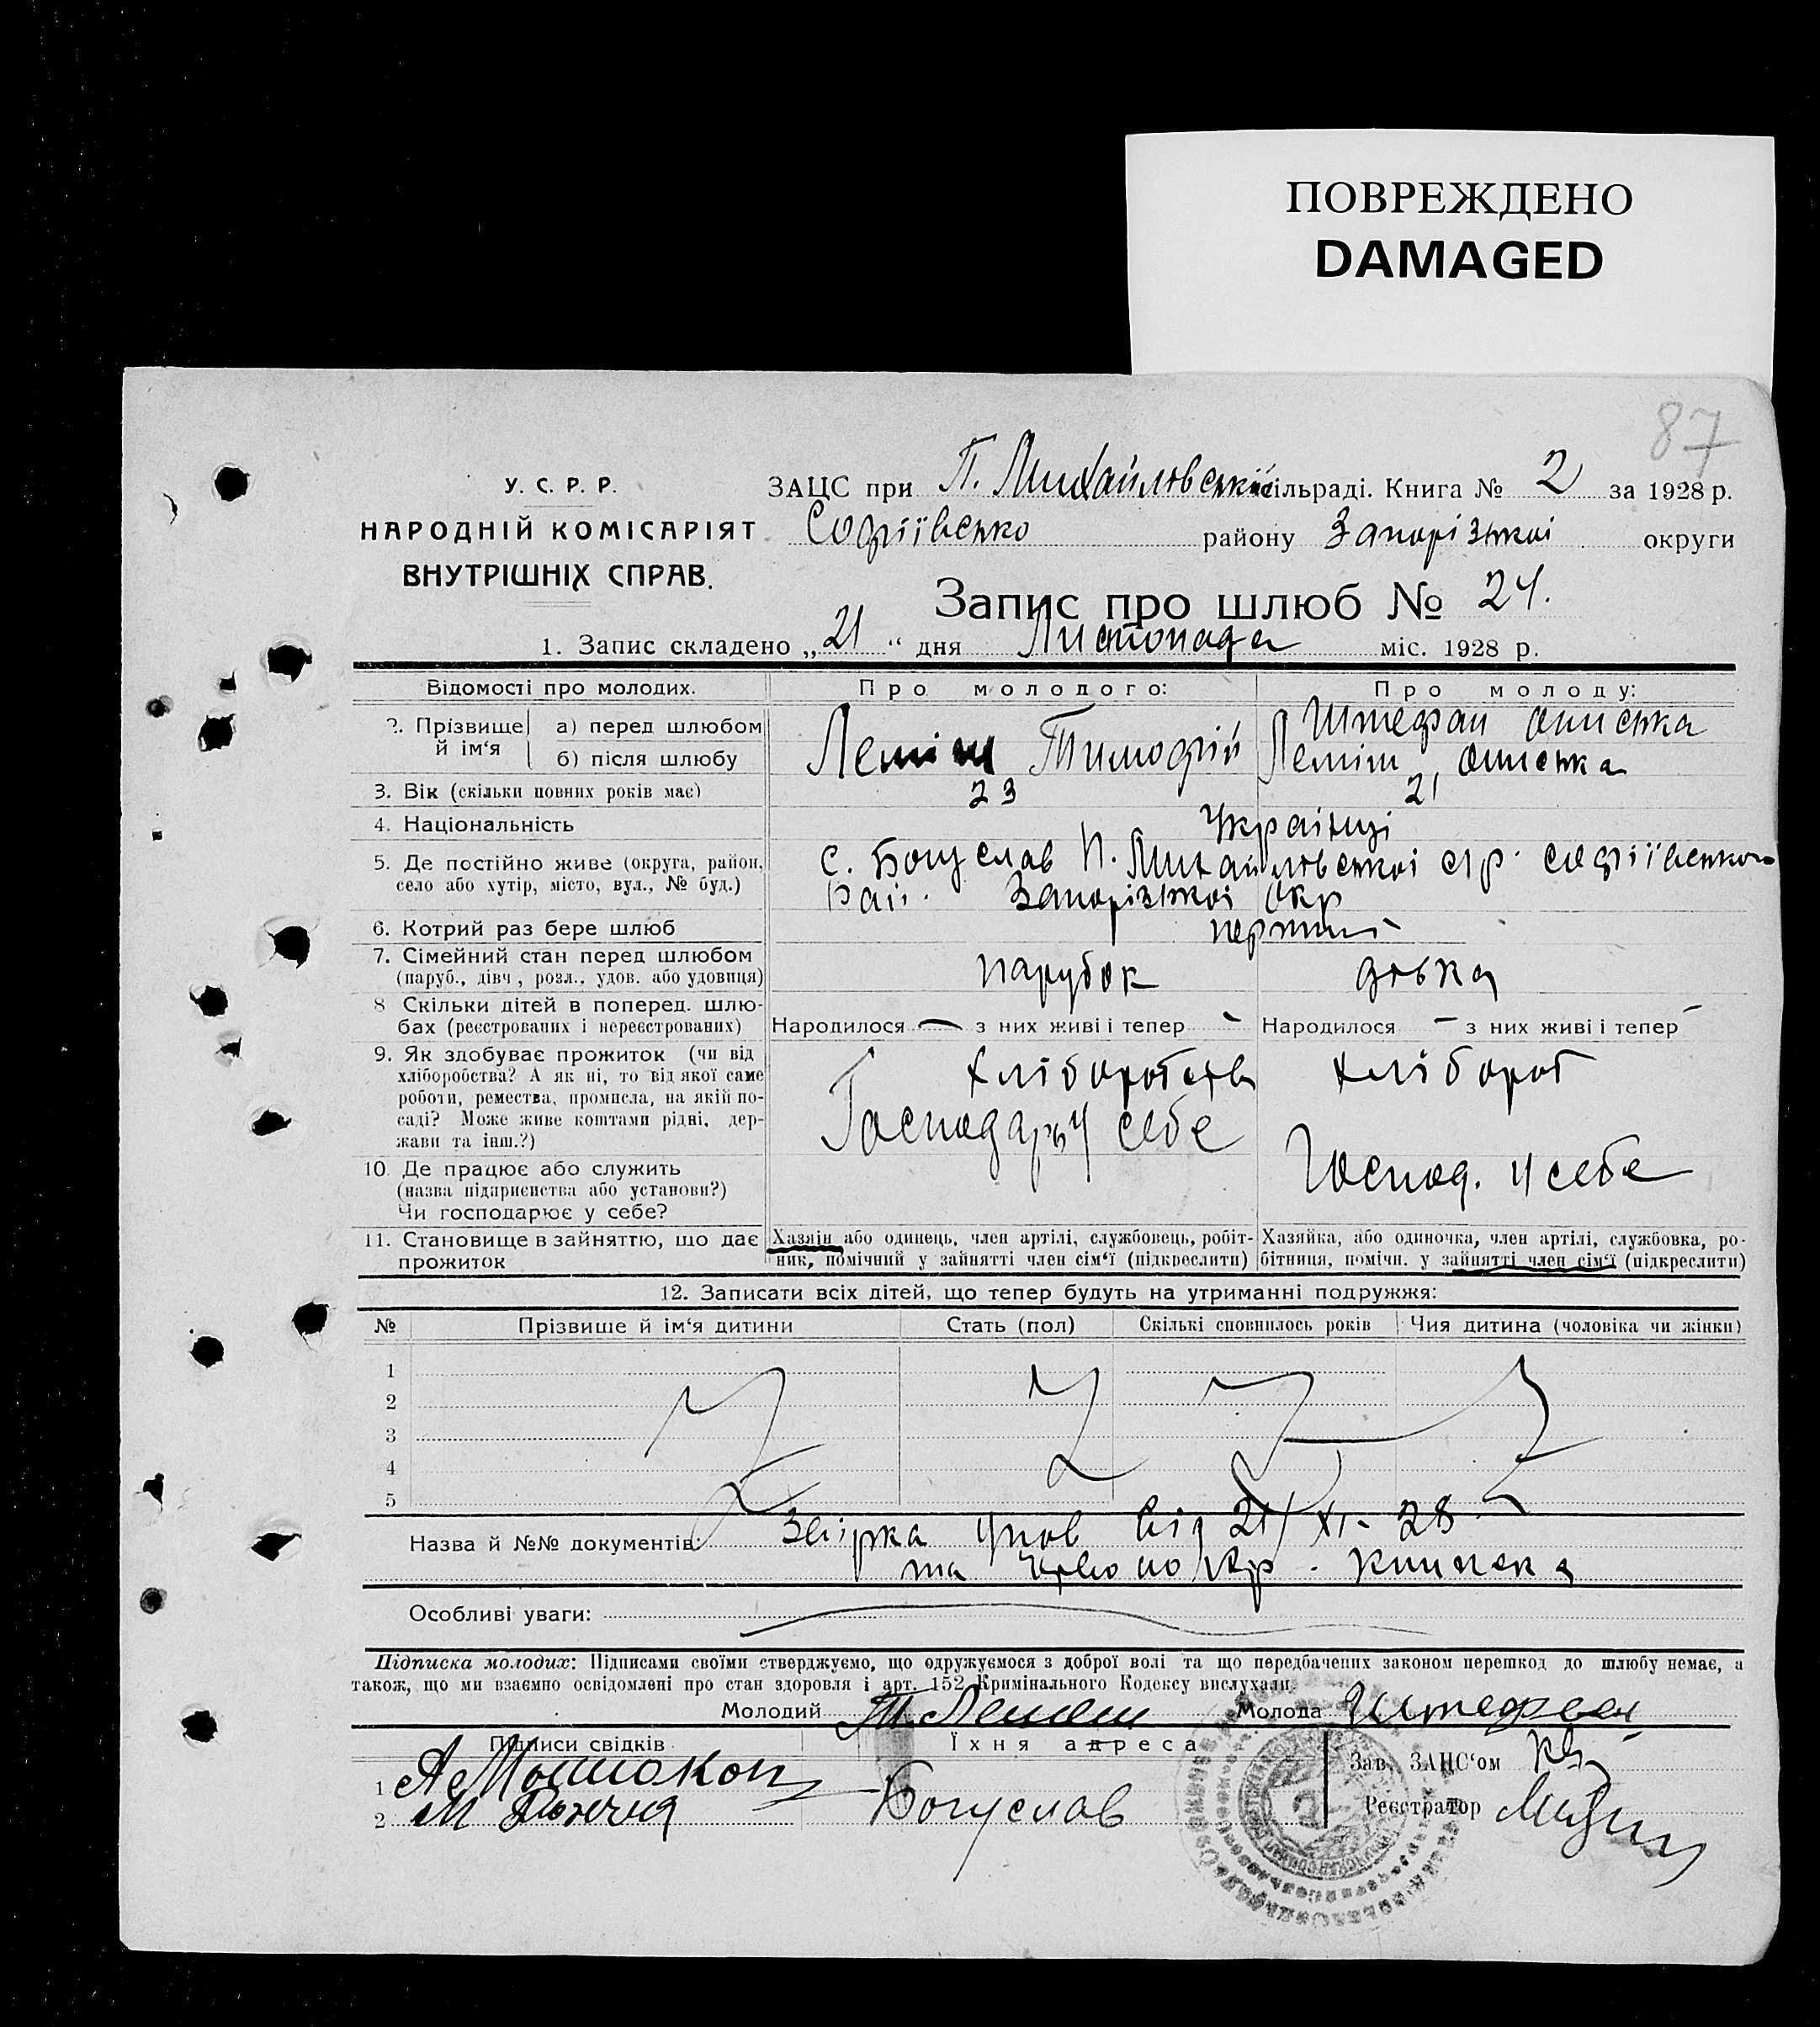 ПОВРЕЖДЕНО
DAMAGED
87
У. С. Р. Р.
НАРОДНІЙ КОМІСАРІЯТ
ВНУТРІШНІХ СПРАВ.
ЗАЦС при П. Михайловській сільраді. Книга № 2 за 1928 р.
Софіївсько району Запорізької округи
Запис про шлюб № 24.
1. Запис складено „21“ дня Листопада міс. 1928 р.
Відомості про молодих. Про молодого: Про молоду:
2. Прізвище й ім‘я а) перед шлюбом Штефан Ониська
б) після шлюбу Леміш Тимофій Леміш Ониська
3. Вік (скільки повних років має) 23 21
4. Національність Українці
5. Де постійно живе (округа, район, с. Богуслав П. Михайлівської с/р. Софіївського
село або хутір, місто, вул., № буд.) Рай. Запорізької Окр
6. Котрий раз бере шлюб перший
7. Сімейний стан перед шлюбом парубок дівка
(паруб., дівч., розл., удов. або удовиця)
8 Скільки дітей в поперед. шлю-
бах (реєстрованих і нереєстрованих) Народилося — з них живі і тепер - Народилося - з них живі і тепер -
9. Як здобуває прожиток (чи від хліборобства хлібороб
хліборобства? А як ні, то від якої саме
роботи, ремества, промисла, на якій по- Господарь у себе
саді? Може живе коштами рідні, дер-
жави та інш.?)
10. Де працює або служить Господ. у себе
(назва підприємства або установи?)
Чи господарює у себе?
11. Становище в зайняттю, що дає Хазяїн або одинець, член артілі, службовець, робіт- Хазяйка, або одиночка, член артілі, службовка, ро-
прожиток ник, помічний у зайнятті член сім‘ї (підкреслити) бітниця, помічн. у зайнятті член сім‘ї (підкреслити)
12. Записати всіх дітей, що тепер будуть на утриманні подружжя:
№ Прізвише й ім‘я дитини Стать (пол) Скількі сповнилось років Чия дитина (чоловіка чи жінки)
1
2
3
4
5
Назва й №№ документів: Звірка від 21/XI- 28
та книжка
Особливі уваги:
Підписка молодих: Підписами своїми стверджуємо, що одружуємося з доброї волі та що передбачених законом перешкод до шлюбу немає, а
також, що ми взаємно освідомлені про стан здоровля і арт. 152 Кримінального Кодексу вислухали
Молодий Т. Лемеш Молода Штефан
Підписи свідків Їхня адреса Зав. ЗАЦС‘ом
1 Богуслав Реєстратор
2 М